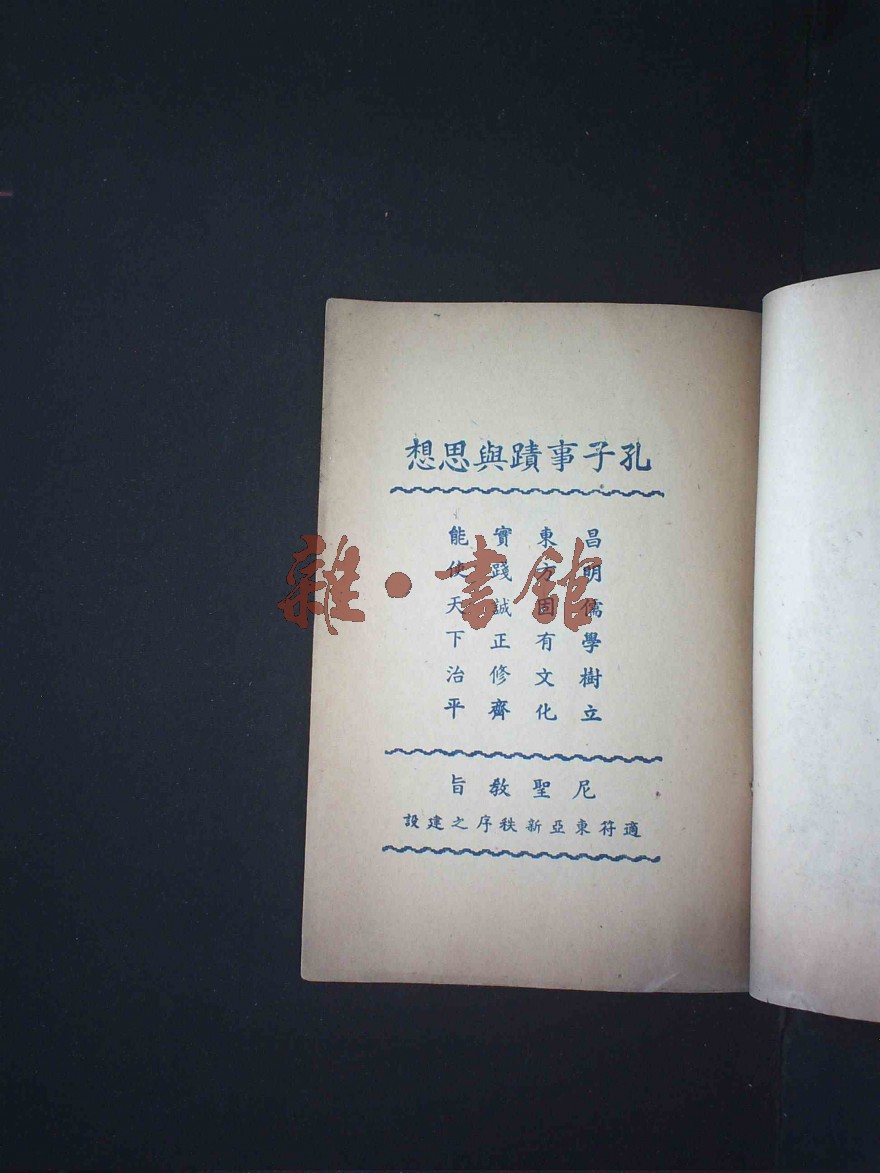 孔子事蹟與思想
昌明儒學樹立
東方固有文化
實踐誠正修齊
能使天下治平
尼聖教旨
適符東亞新秩序之建設
雜·書館